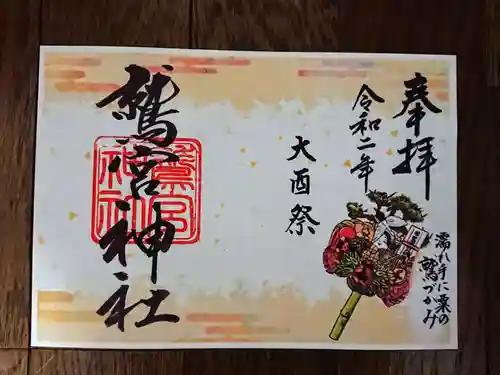 奉拝
令和二年
大酉祭
鷲宮神社
鷲宮神社
濡れ手に粟の
鷲づかみ